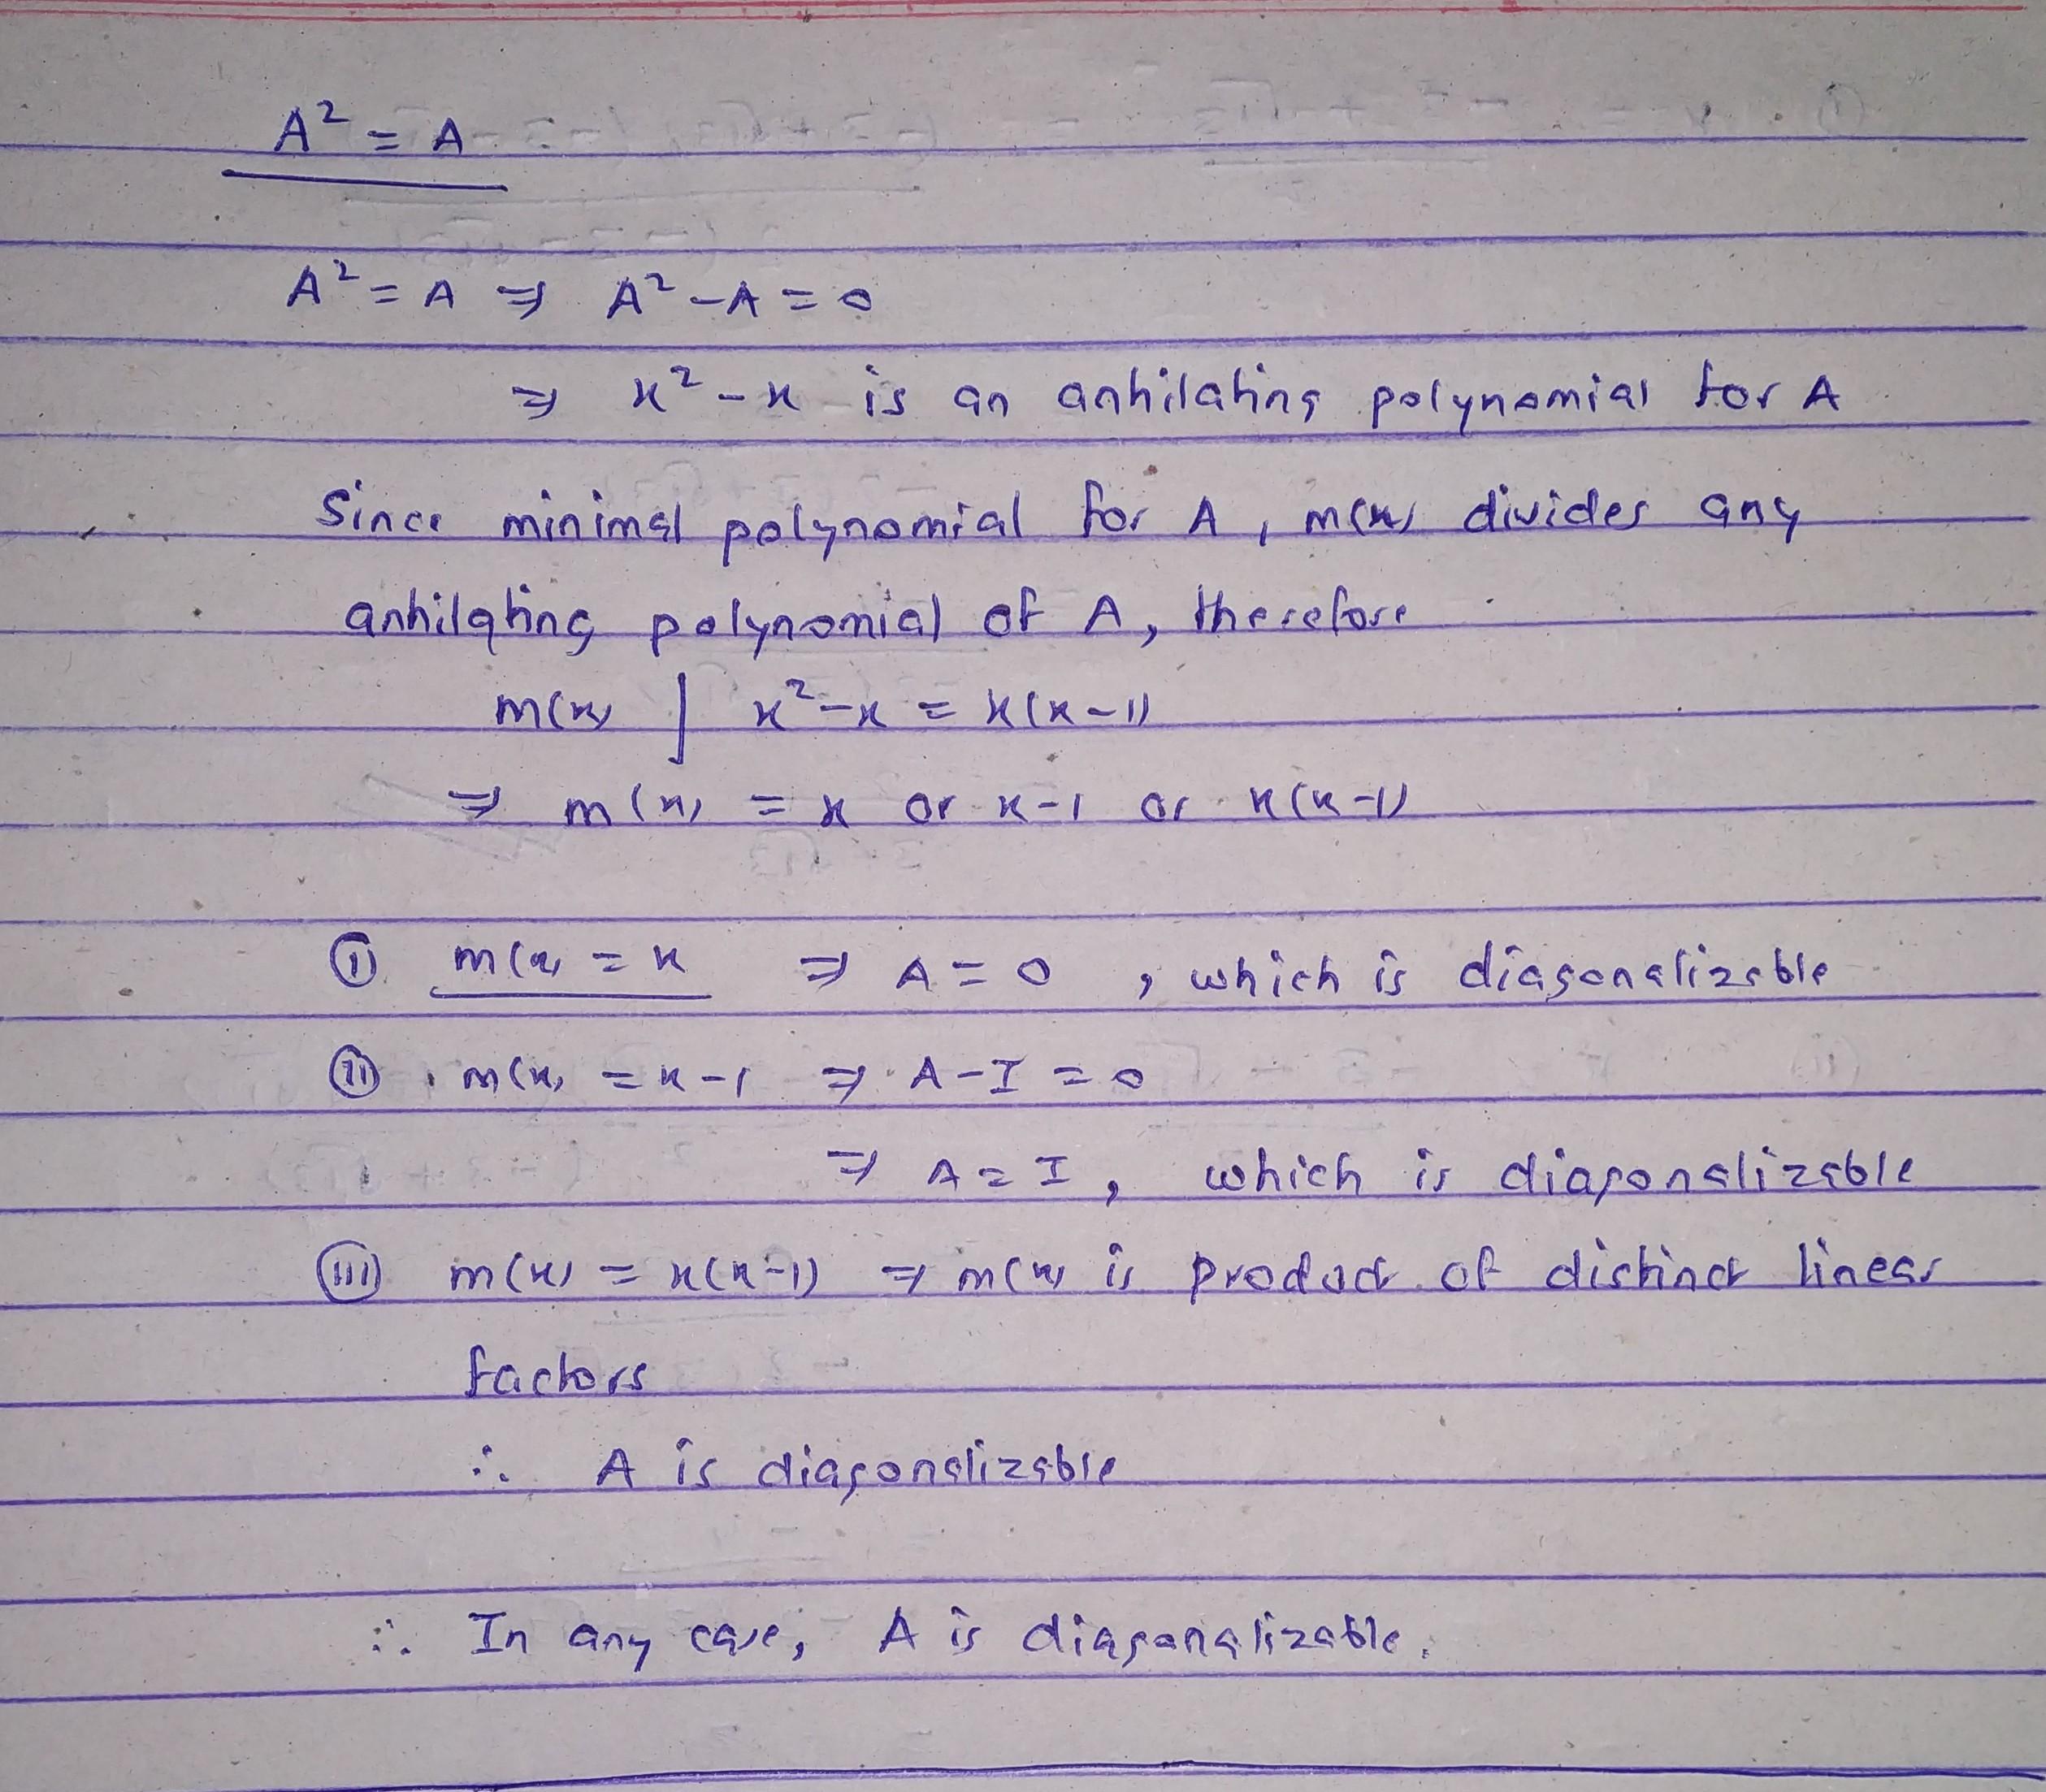 A² = A
A² = A ⇒ A² - A = 0
⇒ x² - x is an anhilating polynomial for A
Since minimal polynomial for A, m(x) divides any
anhilating polynomial of A, therefore
m(x) | x² - x = x(x-1)
⇒ m(x) = x or x-1 or x(x-1)
(i) m(x) = x ⇒ A = 0, which is diagonalizable
(ii) m(x) = x-1 ⇒ A - I = 0
⇒ A = I, which is diagonalizable
(iii) m(x) = x(x-1) ⇒ m(x) is product of distinct linear
factors
∴ A is diagonalizable
∴ In any case, A is diagonalizable.